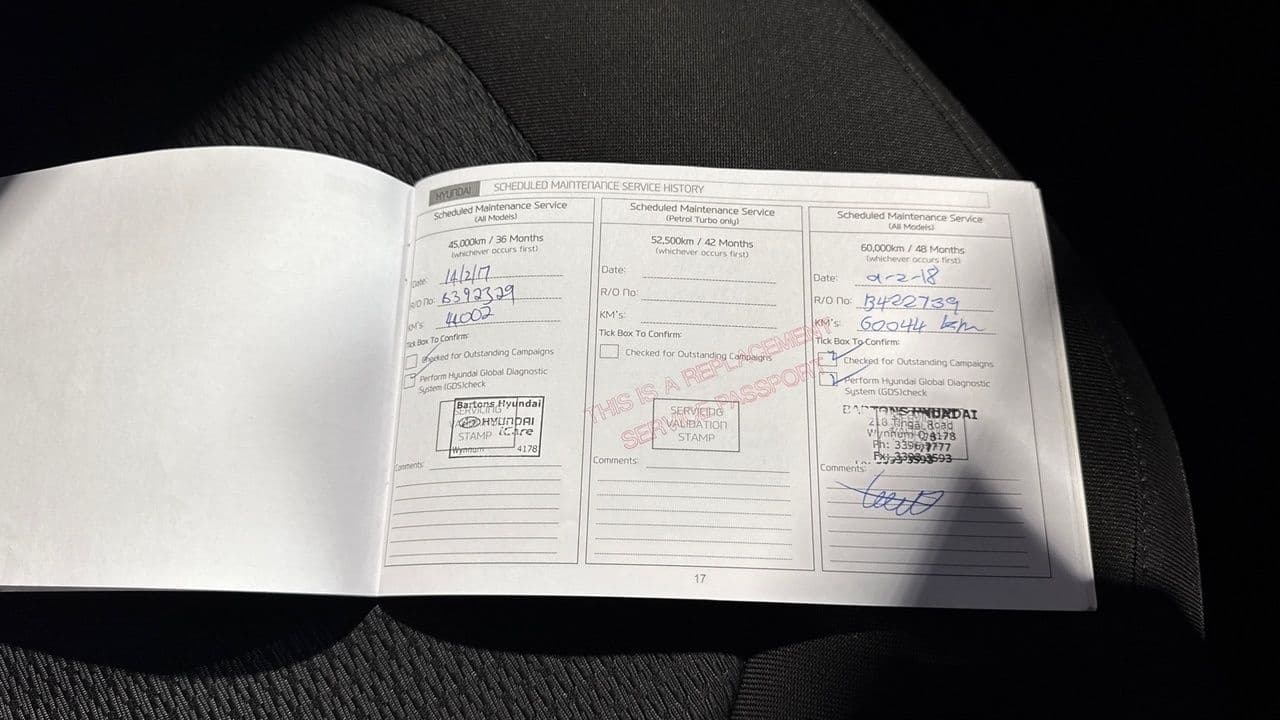 HYUNDAI SCHEDULED MAINTENANCE SERVICE HISTORY
Scheduled Maintenance Service
(All Models)
45,000km / 36 Months
(whichever occurs first)
Date: 14/2/17
R/O No: 6392329
KM's:
Tick Box To Confirm:
Checked for Outstanding Campaigns
Perform Hyundai Global Diagnostic
System (GDS)check
Bartons Hyundai
SERVICING
HYUNDAI
STAMP iCare
Wynnum 4178
Comments:
Scheduled Maintenance Service
(Petrol Turbo only)
52,500km / 42 Months
(whichever occurs first)
Date:
R/O No:
KM's:
Tick Box To Confirm:
Checked for Outstanding Campaigns
THIS IS A REPLACEMENT
SERVICE PASSPORT
SERVICING
VALIDATION
STAMP
Comments:
Scheduled Maintenance Service
(All Models)
60,000km / 48 Months
(whichever occurs first)
Date: 9-2-18
R/O No: B422739
KM's: 60044 km
Tick Box To Confirm:
Checked for Outstanding Campaigns
Perform Hyundai Global Diagnostic
System (GDS)check
BARTONS HYUNDAI
Tingal Road
Wynnum 4178
Ph: 3396 7777
Comments:
17